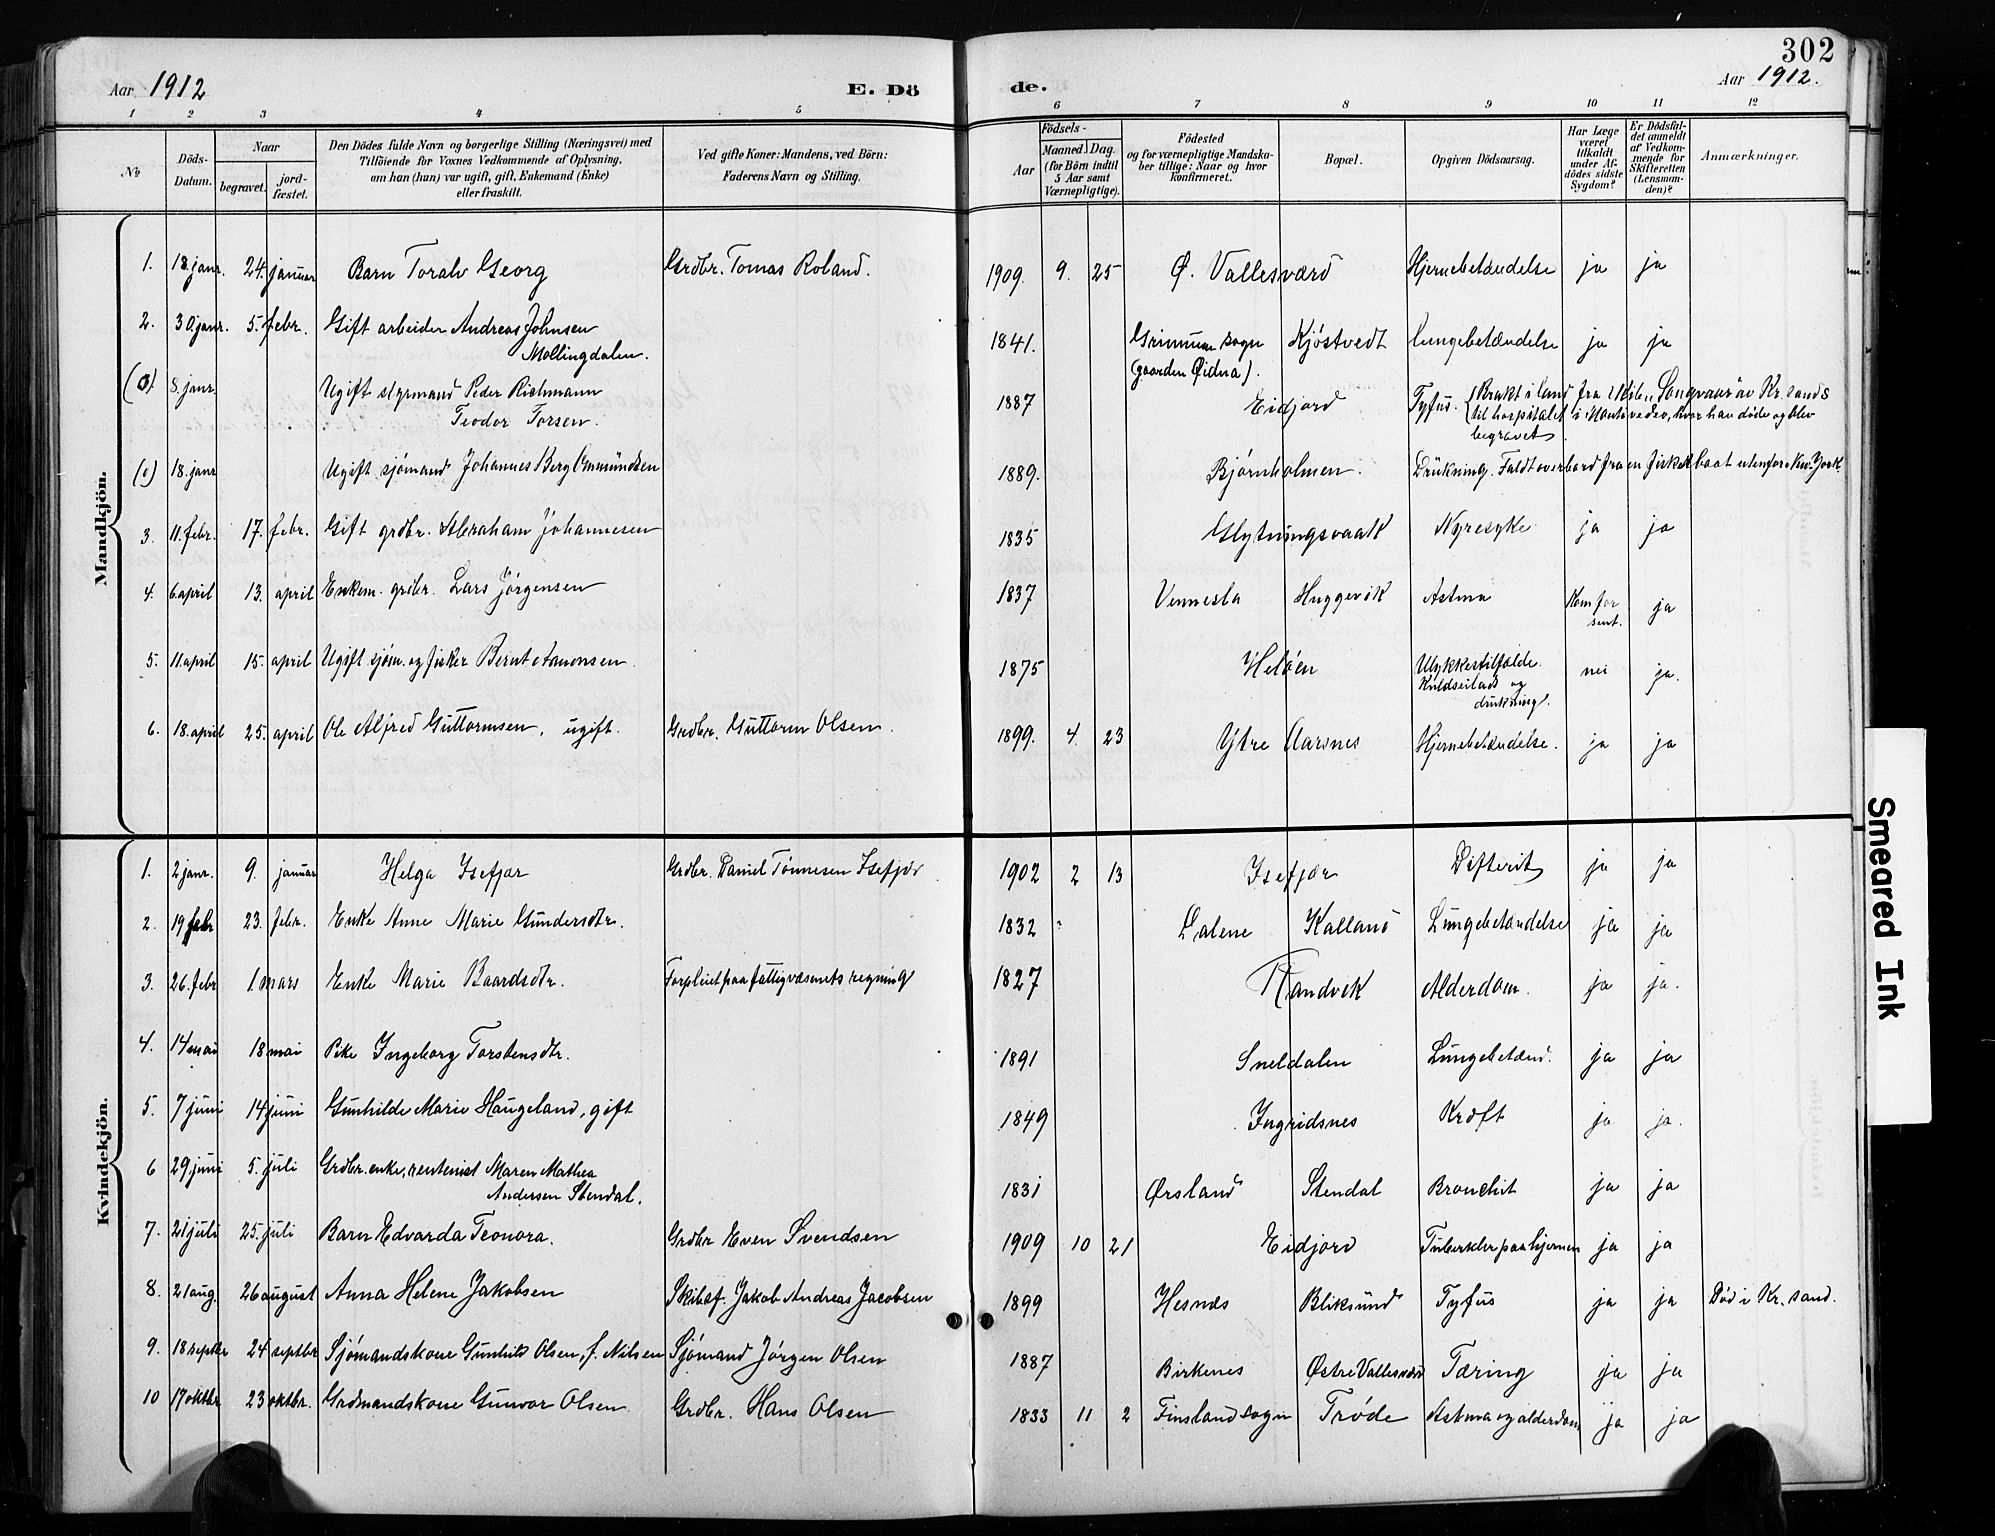 302
Aar 1912 E. Dö de. Aar 1912.
1 2 3 4 5 6 7 8 9 10 11 12
No
Döds-Datum.
Naar
begravet. jord-fæstet.
Den Dödes fulde Navn og borgerlige Stilling (Næringsvei) med
Tilföiende for Voxnes Vedkommende af Oplysning,
om han (hun) var ugift, gift, Enkemand (Enke)
eller fraskilt.
Ved gifte Koner: Mandens, ved Börn:
Faderens Navn og Stilling.
Födsels-
Aar Maaned. Dag.
(for Börn indtil
5 Aar samt
Værnepligtige).
Födested
og for værnepligtige Mandska-
ber tillige: Naar og hvor
konfirmeret.
Bopæl.
Opgiven Dödsaarsag.
Har Læge
været
tilkaldt
under Af-
dödes sidste
Sygdom?
Er Dödsfal-
det anmeldt
af Vedkom-
mende for
Skifteretten
(Lensman-
den)?
Anmærkninger.
Mandkjön.
1. 18. janr. 24. januar Barn Toralv Georg Grdbr. Tomas Roland. 1909. 9. 25 Ø. Vallesværd Hjernebetændelse ja ja
2. 30. janr. 5. febr. Gift arbeider Andreas Johnsen
Mollingdalen. 1841. Grimnum sogn
(gaarden Øidna). Kjöstvedt Lungebetændelse ja ja
8. janr. Ugift styrmand Peder Richmann
Teodor Torsen. 1887 Eidjord Tyfus. (Brakt i land fra skib „Songvaar" av Kr.sands
til hospitalet i Montevedeo, hvor han døde og blev
begravet
18. janr Ugift sjömand Johannes Berg Gmundsen 1889. Bjørnholmen. Drukning. Faldt overbord fra en fiskebaat utenfor New York.
3. 11. febr. 17. febr. Gift grdbr. Abraham Johannesen 1835 Glytningsvaak Nyresyke ja ja
4. 6. april 13. april Enkem. grdbr. Lars Jörgensen 1837 Vennesla Huggevik Astma Kom for
sent. ja
5. 11. april 15. april Ugift sjöm. og fisker Bernt Aanonsen 1875 Helöen Ulykkestilfælde.
Kuldseilads og
drukning. nei ja.
6. 18. april 25. april Ole Alfred Guttormsen, ugift. Grdbr. Guttorm Olsen. 1899. 4. 23 Ytre Aarsnes Hjernebetændelse. ja ja
Kvindekjön.
1. 2 janr. 9. januar Helga Isefjær Grdbr. Daniel Tönnesen Isefjær 1902 2 13 Isefjær Difterit ja ja
2. 19 febr 23. febr. Enke Anne Marie Gundersdtr. 1832 Dalene Kalland Lungebetændelse ja ja
3. 26. febr 1. mars Enke Marie Baardsdtr. Forpleiet paa fattigvæsenets regning 1827 Randvik Alderdom. ja ja.
4. 14 mai 18 mai Pike Ingeborg Torstensdtr. 1891 Sneldalen Lungebetænd. ja ja
5. 7 juni 14 juni Gunhilde Marie Haugeland, gift 1849 Ingridsnes Kræft ja ja.
6 29 juni 5. juli Grdbr. enke, rentenist Maren Mathea
Andersen Stendal. 1831 Ørsland Stendal Bronchit ja ja
7. 21 juli 25. juli Barn Edvarda Teonora. Grdbr Even Svendsen 1909 10 21 Eidjord Tuberkler paa hjernen ja ja
8. 21 aug. 26 august Anna Helene Jakobsen Skibsf. Jakob Andreas Jacobsen 1899 Hesnæs Bliksund Tyfus ja ja Död i Kr. sand.
9. 18 septbr 24 septbr Sjömandskone Gunhild Olsen, f. Nilsen Sjömand Jörgen Olsen 1887 Birkenes Østre Vallesværd Tæring ja ja
10 17 oktbr 23 oktbr. Grdmandskone Gunvor Olsen Grdbr. Hans Olsen 1833 11 2 Finsland sogn Tröde Astma og alderdom ja ja
Smeared Ink